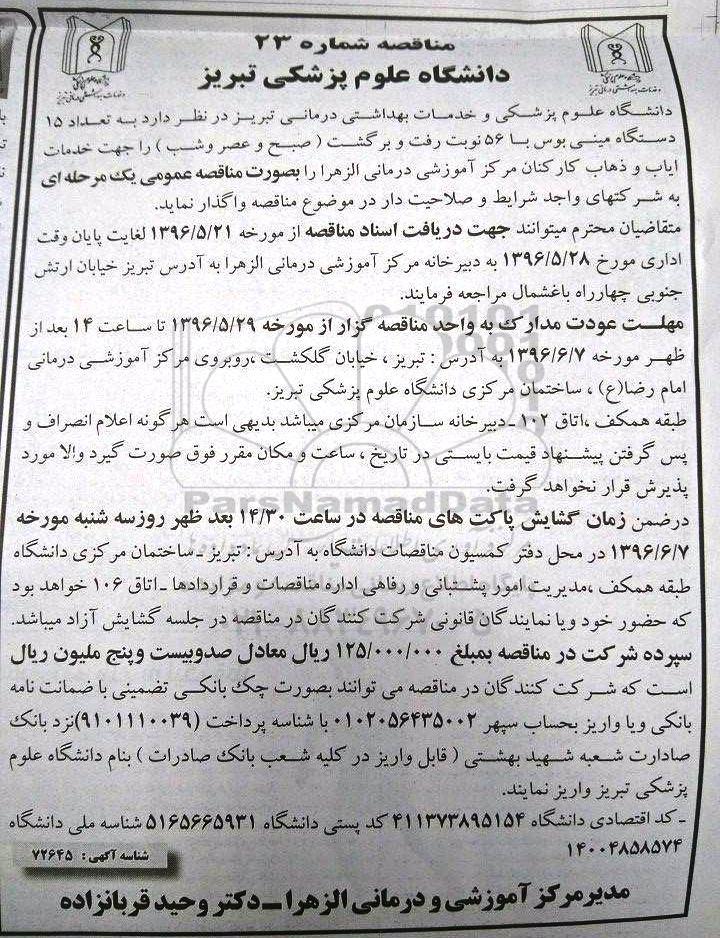 مناقصه شماره ۲۳
دانشگاه علوم پزشکی تبریز
دانشگاه علوم پزشکی و خدمات بهداشتی درمانی تبریز در نظر دارد به تعداد ۱۵
دستگاه مینی بوس با ۵۶ نوبت رفت و برگشت ( صبح و عصر وشب ) را جهت خدمات
ایاب و ذهاب کارکنان مرکز آموزشی درمانی الزهرا را بصورت مناقصه عمومی یک مرحله ای
به شرکتهای واجد شرایط و صلاحیت دار در موضوع مناقصه واگذار نماید.
متقاضیان محترم میتوانند جهت دریافت اسناد مناقصه از مورخه ۱۳۹۶/۵/۲۱ لغایت پایان وقت
اداری مورخ ۱۳۹۶/۵/۲۸ به دبیرخانه مرکز آموزشی درمانی الزهرا به آدرس تبریز خیابان ارتش
جنوبی چهارراه باغشمال مراجعه فرمایند.
مهلت عودت مدارک به واحد مناقصه گزار از مورخه ۱۳۹۶/۵/۲۹ تا ساعت ۱۴ بعد از
ظهر مورخه ۱۳۹۶/۶/۷ به آدرس : تبریز ، خیابان گلگشت ،روبروی مرکز آموزشی درمانی
امام رضا(ع) ، ساختمان مرکزی دانشگاه علوم پزشکی تبریز.
طبقه همکف ،اتاق ۱۰۲ ـ دبیرخانه سازمان مرکزی میباشد بدیهی است هرگونه اعلام انصراف و
پس گرفتن پیشنهاد قیمت بایستی در تاریخ ، ساعت و مکان مقرر فوق صورت گیرد والا مورد
پذیرش قرار نخواهد گرفت.
ParsNamadData
درضمن زمان گشایش پاکت های مناقصه در ساعت ۱۴/۳۰ بعد ظهر روزسه شنبه مورخه
۱۳۹۶/۶/۷ در محل دفتر کمسیون مناقصات دانشگاه به آدرس: تبریز ـ ساختمان مرکزی دانشگاه
طبقه همکف ،مدیریت امور پشتبانی و رفاهی اداره مناقصات و قراردادها ـ اتاق ۱۰۶ خواهد بود
که حضور خود ویا نمایندگان قانونی شرکت کنندگان در مناقصه در جلسه گشایش آزاد میباشد.
سپرده شرکت در مناقصه بمبلغ ۱۲۵/۰۰۰/۰۰۰ ریال معادل صدوبیست وپنج ملیون ریال
است که شرکت کنندگان در مناقصه می توانند بصورت چک بانکی تضمینی با ضمانت نامه
بانکی ویا واریز بحساب سپهر ۰۱۰۲۰۵۶۴۳۵۰۰۲ با شناسه پرداخت (۹۱۰۱۱۱۰۰۳۹)نزد بانک
صادرات شعبه شهید بهشتی ( قابل واریز در کلیه شعب بانک صادرات ) بنام دانشگاه علوم
پزشکی تبریز واریز نمایند.
ـ کد اقتصادی دانشگاه ۴۱۱۳۷۳۸۹۵۱۵۴ کد پستی دانشگاه ۵۱۶۵۶۶۵۹۳۱ شناسه ملی دانشگاه
۱۴۰۰۴۸۵۸۵۷۴
شناسه آگهی: ۷۲۶۴۵
مدیرمرکز آموزشی و درمانی الزهرا ــ دکتر وحید قربانزاده